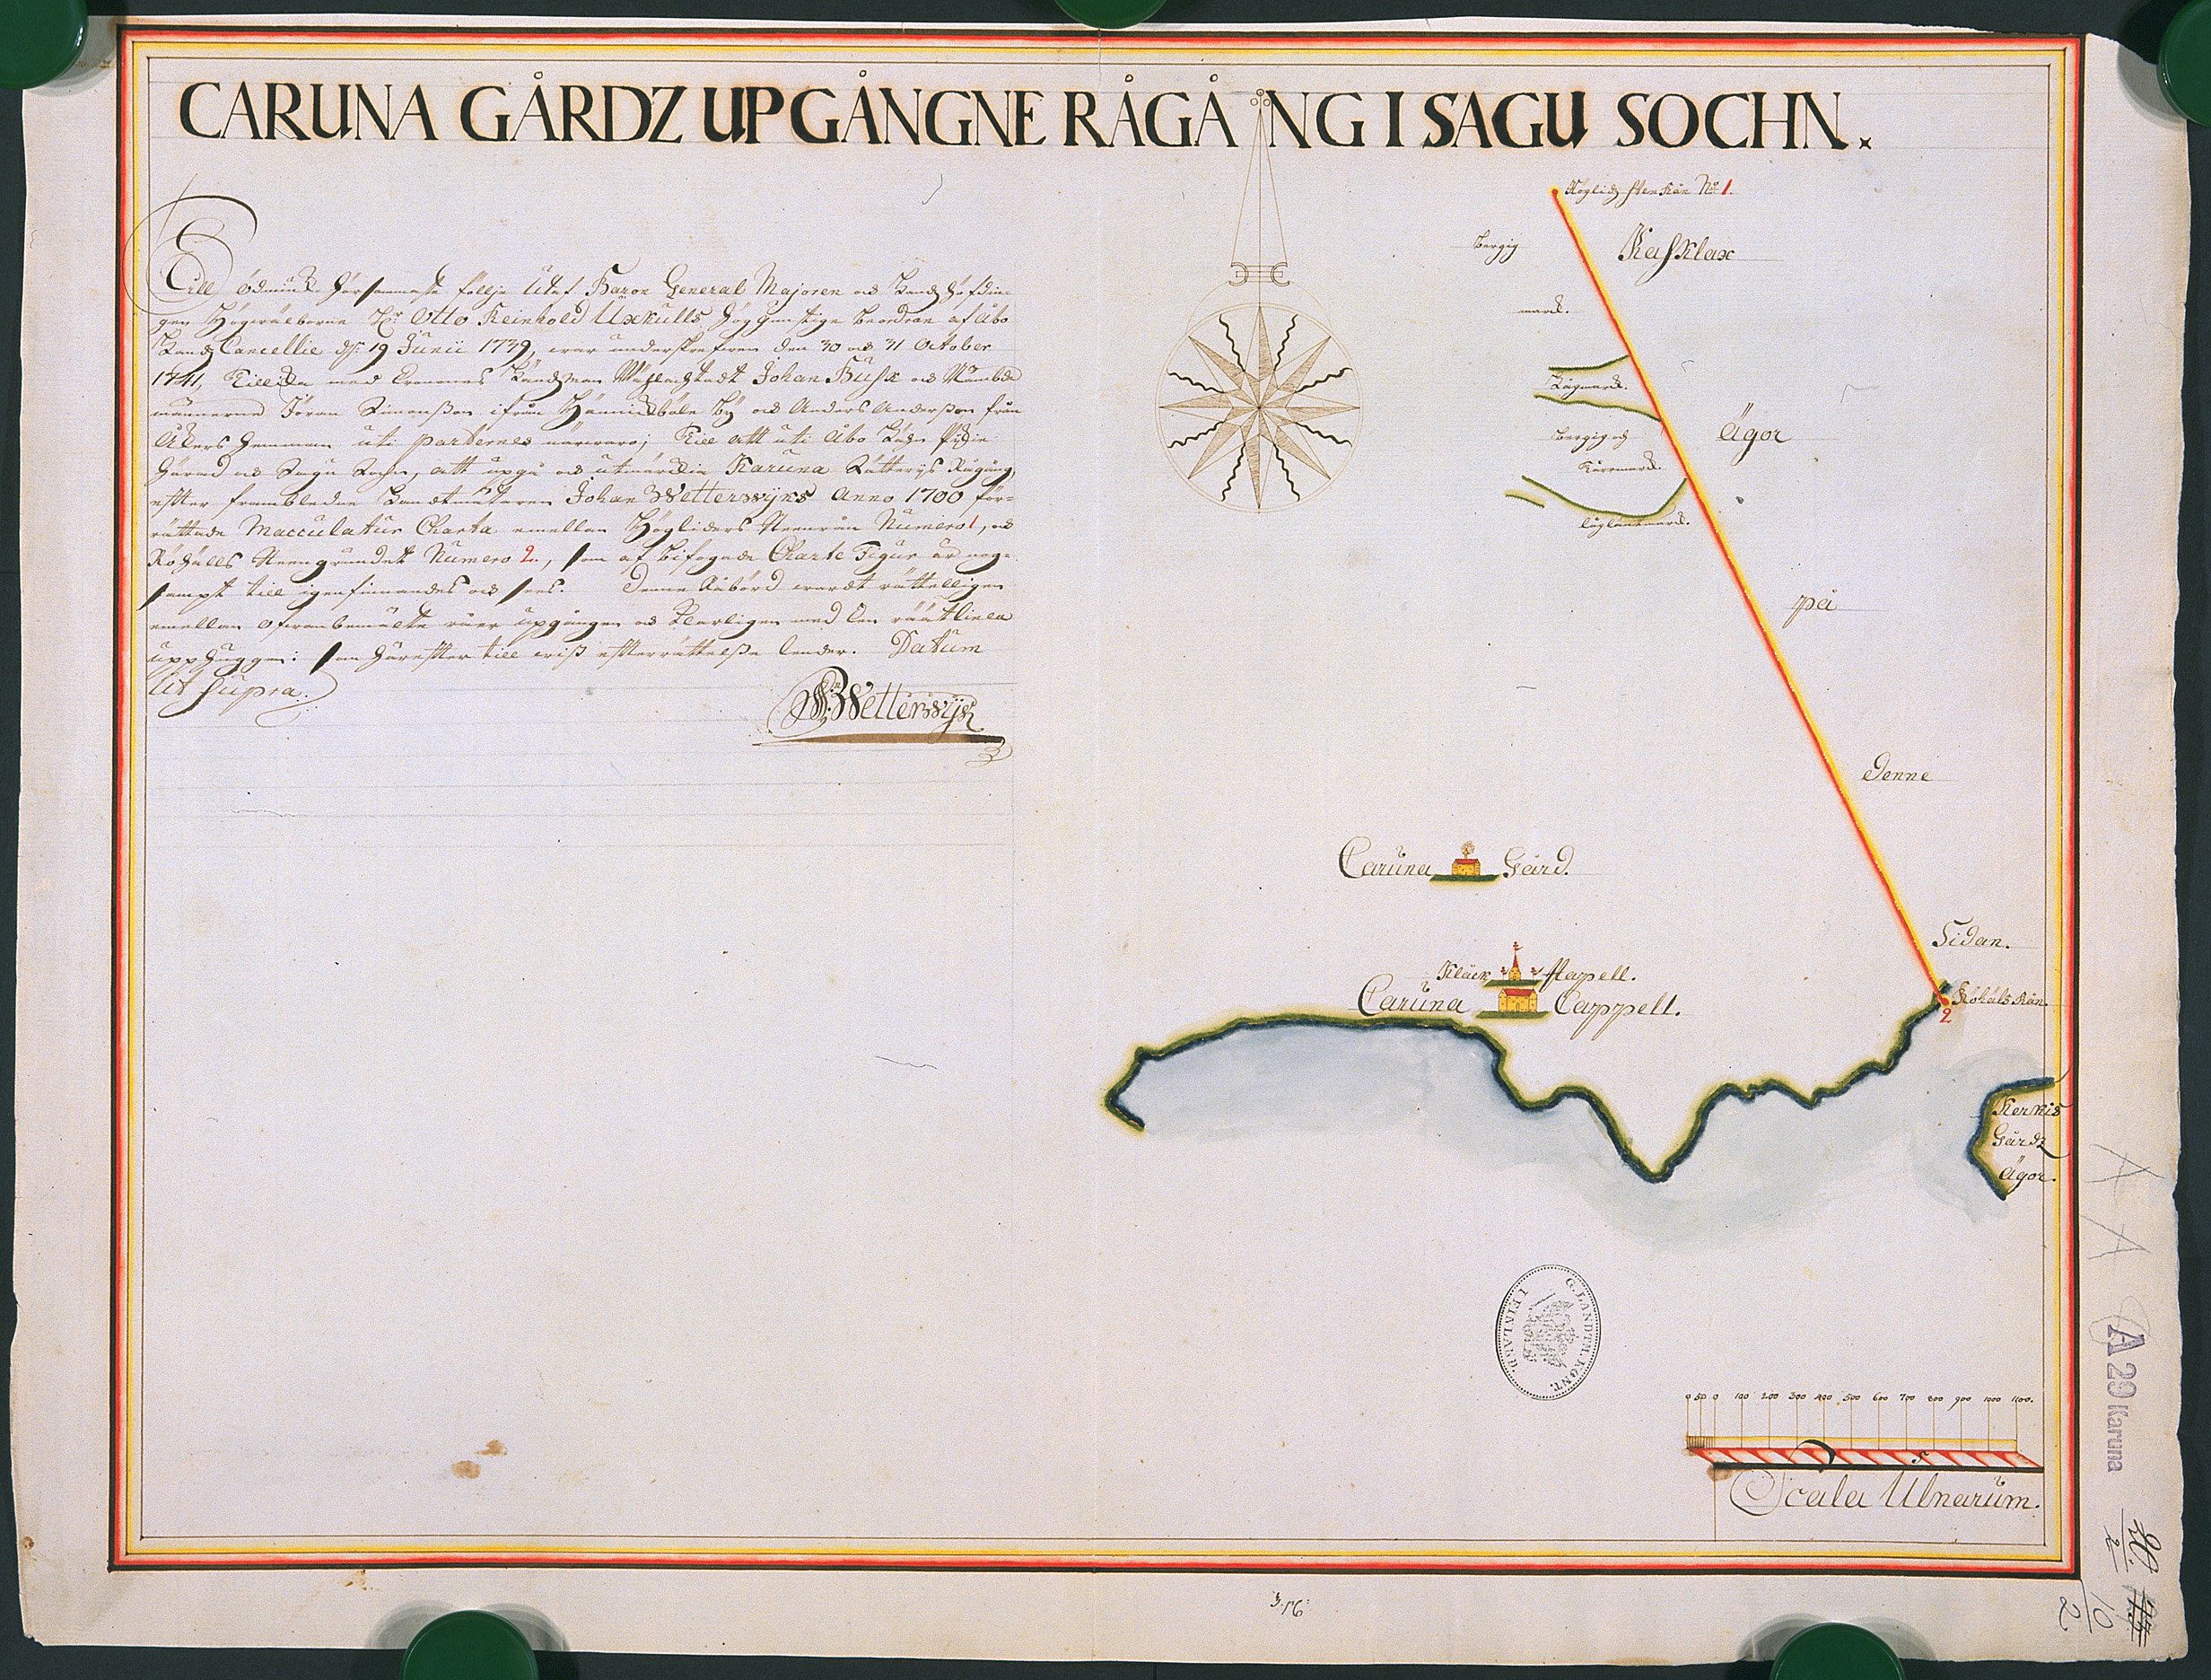 CARUNA GÅRDZ UPGÅNGNE RÅGÅNG I SAGU SOCHN.
Till ödmiuk hörsammaste föllje Utaf Baron General Majoren och Landzhöfdin-
gen Högwälborne Hr Otto Reinhold Uxkulls höggunstige beordran af Åbo
Landz Cancellie d. 19 Junii 1739, war underskrefwen den 30 och 31 October
1741, Tillika med Cronones Länsman Johan Busk och Nämbde
männerne Jöran Simonsson ifrån by och Anders Andersson från
Åkers hemman uti parternes närwaro; till att uti Åbo Lähn
härad och Sagu Sochn, att upgå och utmärckia Karuna Sätterijs Rågång,
effter frambledne Landtmätaren Johan Wetterwijks Anno 1700 för-
rättade Macculatur Charta emellan Högliders Steenrån Numero 1, och
Röhälls Steengrundet Numero 2., som af bifogade Charte Figur är nog-
sampt till igenfinnandes och sees. Denne Råbörd wardt rättelligen
emellan ofwanbemälte råer upgången och klarligen med en räät linea
upphuggen: som häreffter till wiss effterrättelsse lender. Datum
Ut supra.
Wetterwijk
Höglidz sten Rån No 1.
bergig
Kasklax
marck.
Lågmarck.
Ägor
bergig och
Kärrmarck.
låglänt marck.
på
denne
Caruna Gård.
Sidan.
Kläck stapell.
Caruna Cappell.
Röhäls Rån.
2
Kernis
Gårdz
Ägor.
G. LANDTM. KONT.
I FINLAND.
0 50 0 100 200 300 400 500 600 700 800 900 1000 1100.
Scala Ulnarum.
A 29 Karuna
10
2